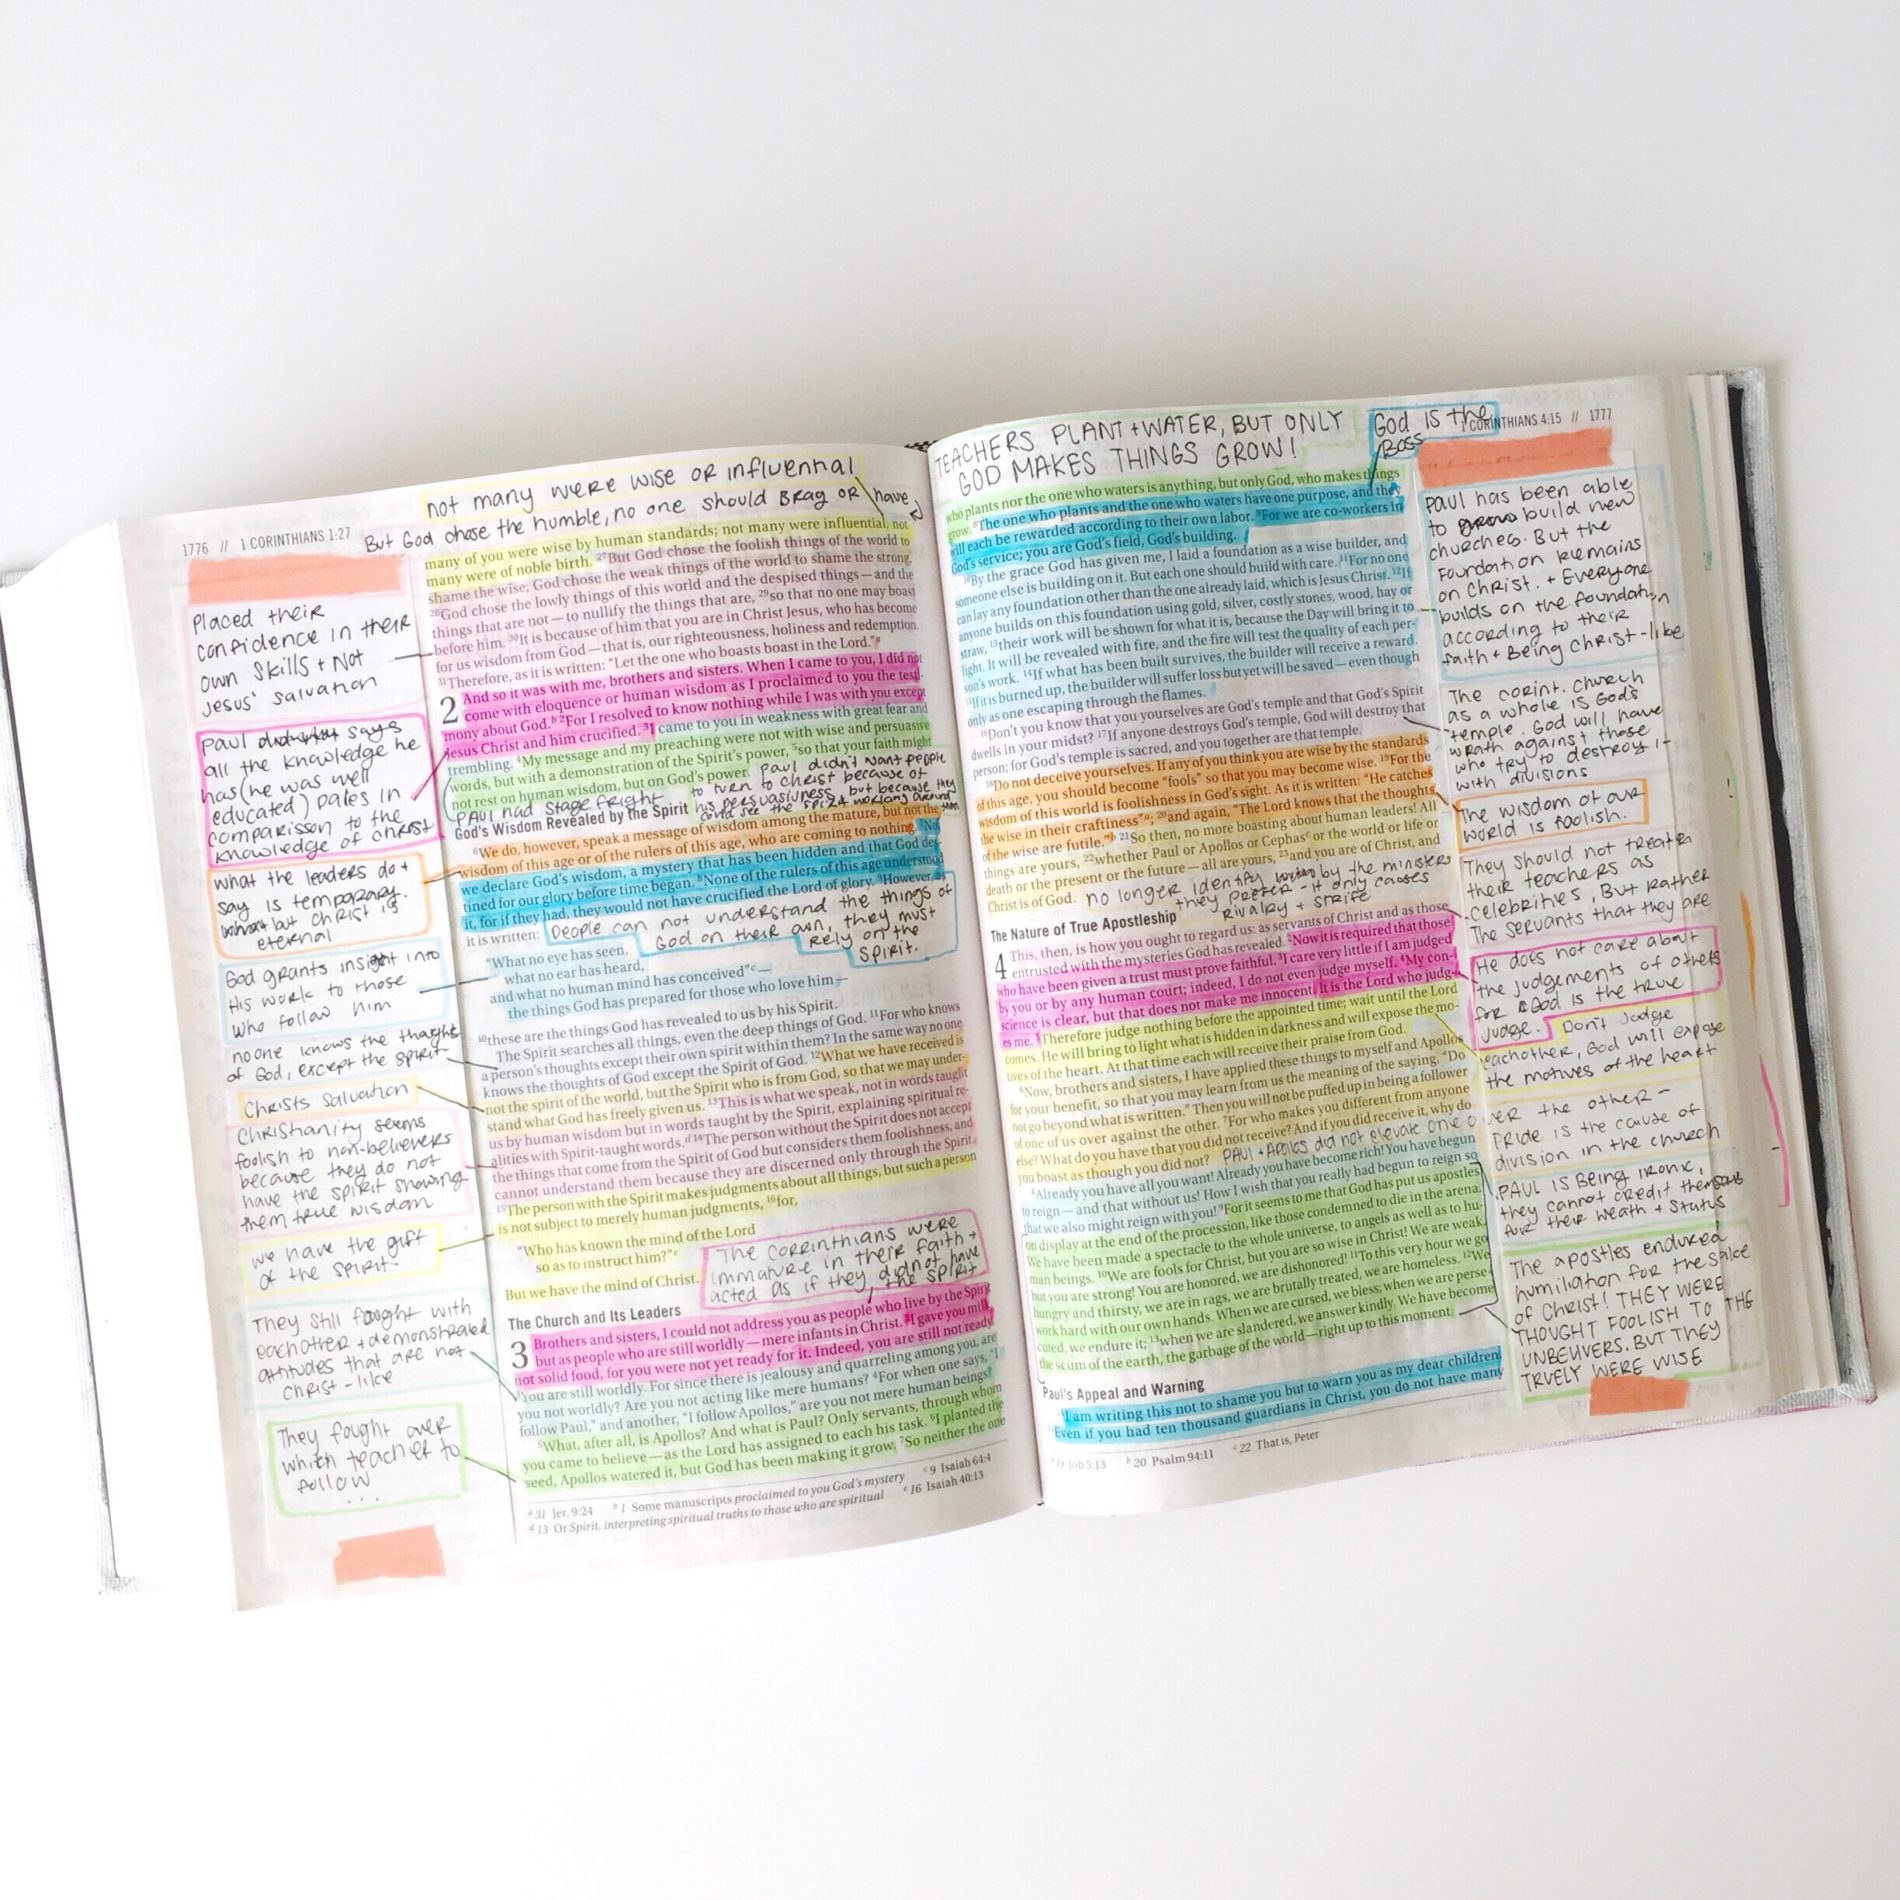 not many were wise or influential
But God chose the humble, no one should brag or have
1776 // 1 CORINTHIANS 1:27
many of you were wise by human standards; not many were influential; not
many were of noble birth. 27But God chose the foolish things of the world to
shame the wise; God chose the weak things of the world to shame the strong.
28God chose the lowly things of this world and the despised things—and the
things that are not—to nullify the things that are, 29so that no one may boast
before him. 30It is because of him that you are in Christ Jesus, who has become
for us wisdom from God—that is, our righteousness, holiness and redemption.
31Therefore, as it is written: "Let the one who boasts boast in the Lord."a
2 And so it was with me, brothers and sisters. When I came to you, I did not
come with eloquence or human wisdom as I proclaimed to you the testi-
mony about God.b 2For I resolved to know nothing while I was with you except
Jesus Christ and him crucified. 3I came to you in weakness with great fear and
trembling. 4My message and my preaching were not with wise and persuasive
words, but with a demonstration of the Spirit's power, 5so that your faith might
not rest on human wisdom, but on God's power.
Paul didn't want people
to turn to Christ because of
his persuasivness, but because they
could see the spirit working around
them
Paul had stage fright
God's Wisdom Revealed by the Spirit
6We do, however, speak a message of wisdom among the mature, but not the
wisdom of this age or of the rulers of this age, who are coming to nothing. 7No,
we declare God's wisdom, a mystery that has been hidden and that God des-
tined for our glory before time began. 8None of the rulers of this age understood
it, for if they had, they would not have crucified the Lord of glory. 9However, as
it is written:
People can not understand the things of
God on their own, they must
rely on the
spirit.
"What no eye has seen,
what no ear has heard,
and what no human mind has conceived"c—
the things God has prepared for those who love him—
10these are the things God has revealed to us by his Spirit.
The Spirit searches all things, even the deep things of God. 11For who knows
a person's thoughts except their own spirit within them? In the same way no one
knows the thoughts of God except the Spirit of God. 12What we have received is
not the spirit of the world, but the Spirit who is from God, so that we may under-
stand what God has freely given us. 13This is what we speak, not in words taught
us by human wisdom but in words taught by the Spirit, explaining spiritual re-
alities with Spirit-taught words.d 14The person without the Spirit does not accept
the things that come from the Spirit of God but considers them foolishness, and
cannot understand them because they are discerned only through the Spirit.
15The person with the Spirit makes judgments about all things, but such a person
is not subject to merely human judgments, 16for,
"Who has known the mind of the Lord
so as to instruct him?"e
But we have the mind of Christ.
The Corrinthians were
immature in their faith +
acted as if they did not have
the spirit
The Church and Its Leaders
3 Brothers and sisters, I could not address you as people who live by the Spirit
but as people who are still worldly—mere infants in Christ. 2I gave you milk,
not solid food, for you were not yet ready for it. Indeed, you are still not ready.
3You are still worldly. For since there is jealousy and quarreling among you, are
you not worldly? Are you not acting like mere humans? 4For when one says, "I
follow Paul," and another, "I follow Apollos," are you not mere human beings?
5What, after all, is Apollos? And what is Paul? Only servants, through whom
you came to believe—as the Lord has assigned to each his task. 6I planted the
seed, Apollos watered it, but God has been making it grow. 7So neither the one
a 31 Jer. 9:24 b 1 Some manuscripts proclaimed to you God's mystery c 9 Isaiah 64:4
d 13 Or Spirit, interpreting spiritual truths to those who are spiritual e 16 Isaiah 40:13
Placed their
confidence in their
own skills + Not
Jesus' salvation
Paul says
all the knowledge he
has (he was well
educated) pales in
comparisson to the
knowledge of Christ
what the leaders do +
say is temparary.
but Christ is
eternal
God grants insight into
His work to those
who follow him
no one knows the thoughts
of God, except the spirit
Christs salvation
Christianity seems
foolish to non-believers
because they do not
have the spirit showing
them true wisdom
we have the gift
of the spirit.
They still fought with
eachother + demonstrated
attitudes that are not
Christ-like
They fought over
which teacher to
follow
...
TEACHERS PLANT + WATER, BUT ONLY
GOD MAKES THINGS GROW!
God is the
Boss
1 CORINTHIANS 4:15 // 1777
who plants nor the one who waters is anything, but only God, who makes things
grow. 8The one who plants and the one who waters have one purpose, and they
will each be rewarded according to their own labor. 9For we are co-workers in
God's service; you are God's field, God's building.
10By the grace God has given me, I laid a foundation as a wise builder, and
someone else is building on it. But each one should build with care. 11For no one
can lay any foundation other than the one already laid, which is Jesus Christ. 12If
anyone builds on this foundation using gold, silver, costly stones, wood, hay or
straw, 13their work will be shown for what it is, because the Day will bring it to
light. It will be revealed with fire, and the fire will test the quality of each per-
son's work. 14If what has been built survives, the builder will receive a reward.
15If it is burned up, the builder will suffer loss but yet will be saved—even though
only as one escaping through the flames.
16Don't you know that you yourselves are God's temple and that God's Spirit
dwells in your midst? 17If anyone destroys God's temple, God will destroy that
person; for God's temple is sacred, and you together are that temple.
18Do not deceive yourselves. If any of you think you are wise by the standards
of this age, you should become "fools" so that you may become wise. 19For the
wisdom of this world is foolishness in God's sight. As it is written: "He catches
the wise in their craftiness"a; 20and again, "The Lord knows that the thoughts
of the wise are futile."b 21So then, no more boasting about human leaders! All
things are yours, 22whether Paul or Apollos or Cephasc or the world or life or
death or the present or the future—all are yours, 23and you are of Christ, and
Christ is of God.
no longer identify by the ministers
they prefer - it only causes
rivalry + strife
The Nature of True Apostleship
4 This, then, is how you ought to regard us: as servants of Christ and as those
entrusted with the mysteries God has revealed. 2Now it is required that those
who have been given a trust must prove faithful. 3I care very little if I am judged
by you or by any human court; indeed, I do not even judge myself. 4My con-
science is clear, but that does not make me innocent. It is the Lord who judg-
es me. 5Therefore judge nothing before the appointed time; wait until the Lord
comes. He will bring to light what is hidden in darkness and will expose the mo-
tives of the heart. At that time each will receive their praise from God.
6Now, brothers and sisters, I have applied these things to myself and Apollos
for your benefit, so that you may learn from us the meaning of the saying, "Do
not go beyond what is written." Then you will not be puffed up in being a follower
of one of us over against the other. 7For who makes you different from anyone
else? What do you have that you did not receive? And if you did receive it, why do
you boast as though you did not?
Paul + Apollos did not elevate one over the other -
8Already you have all you want! Already you have become rich! You have begun
to reign—and that without us! How I wish that you really had begun to reign so
that we also might reign with you! 9For it seems to me that God has put us apostles
on display at the end of the procession, like those condemned to die in the arena.
We have been made a spectacle to the whole universe, to angels as well as to hu-
man beings. 10We are fools for Christ, but you are so wise in Christ! We are weak,
but you are strong! You are honored, we are dishonored! 11To this very hour we go
hungry and thirsty, we are in rags, we are brutally treated, we are homeless. 12We
work hard with our own hands. When we are cursed, we bless; when we are perse-
cuted, we endure it; 13when we are slandered, we answer kindly. We have become
the scum of the earth, the garbage of the world—right up to this moment.
Paul's Appeal and Warning
14I am writing this not to shame you but to warn you as my dear children.
15Even if you had ten thousand guardians in Christ, you do not have many
a 19 Job 5:13 b 20 Psalm 94:11 c 22 That is, Peter
Paul has been able
to build new
churches. But the
foundation remains
on Christ. + Everyone
builds on the foundation
according to their
faith + Being Christ-like
The corint. church
as a whole is God's
temple. God will have
wrath against those
who try to destroy it
with divisions
The wisdom of our
world is foolish.
They should not treat
their teachers as
celebrities, but rather
the servants that they are
He does not care about
the judgements of others
for God is the true
judge.
Don't judge
eachother, God will expose
the motives of the heart
Pride is the cause of
division in the church
PAUL IS BEING IRONIC,
they cannot credit themselves
for their weath + status
The apostles endured
humiliation for the sake
of Christ! THEY WERE
THOUGHT FOOLISH TO THE
UNBELIEVERS. BUT THEY
TRUELY WERE WISE